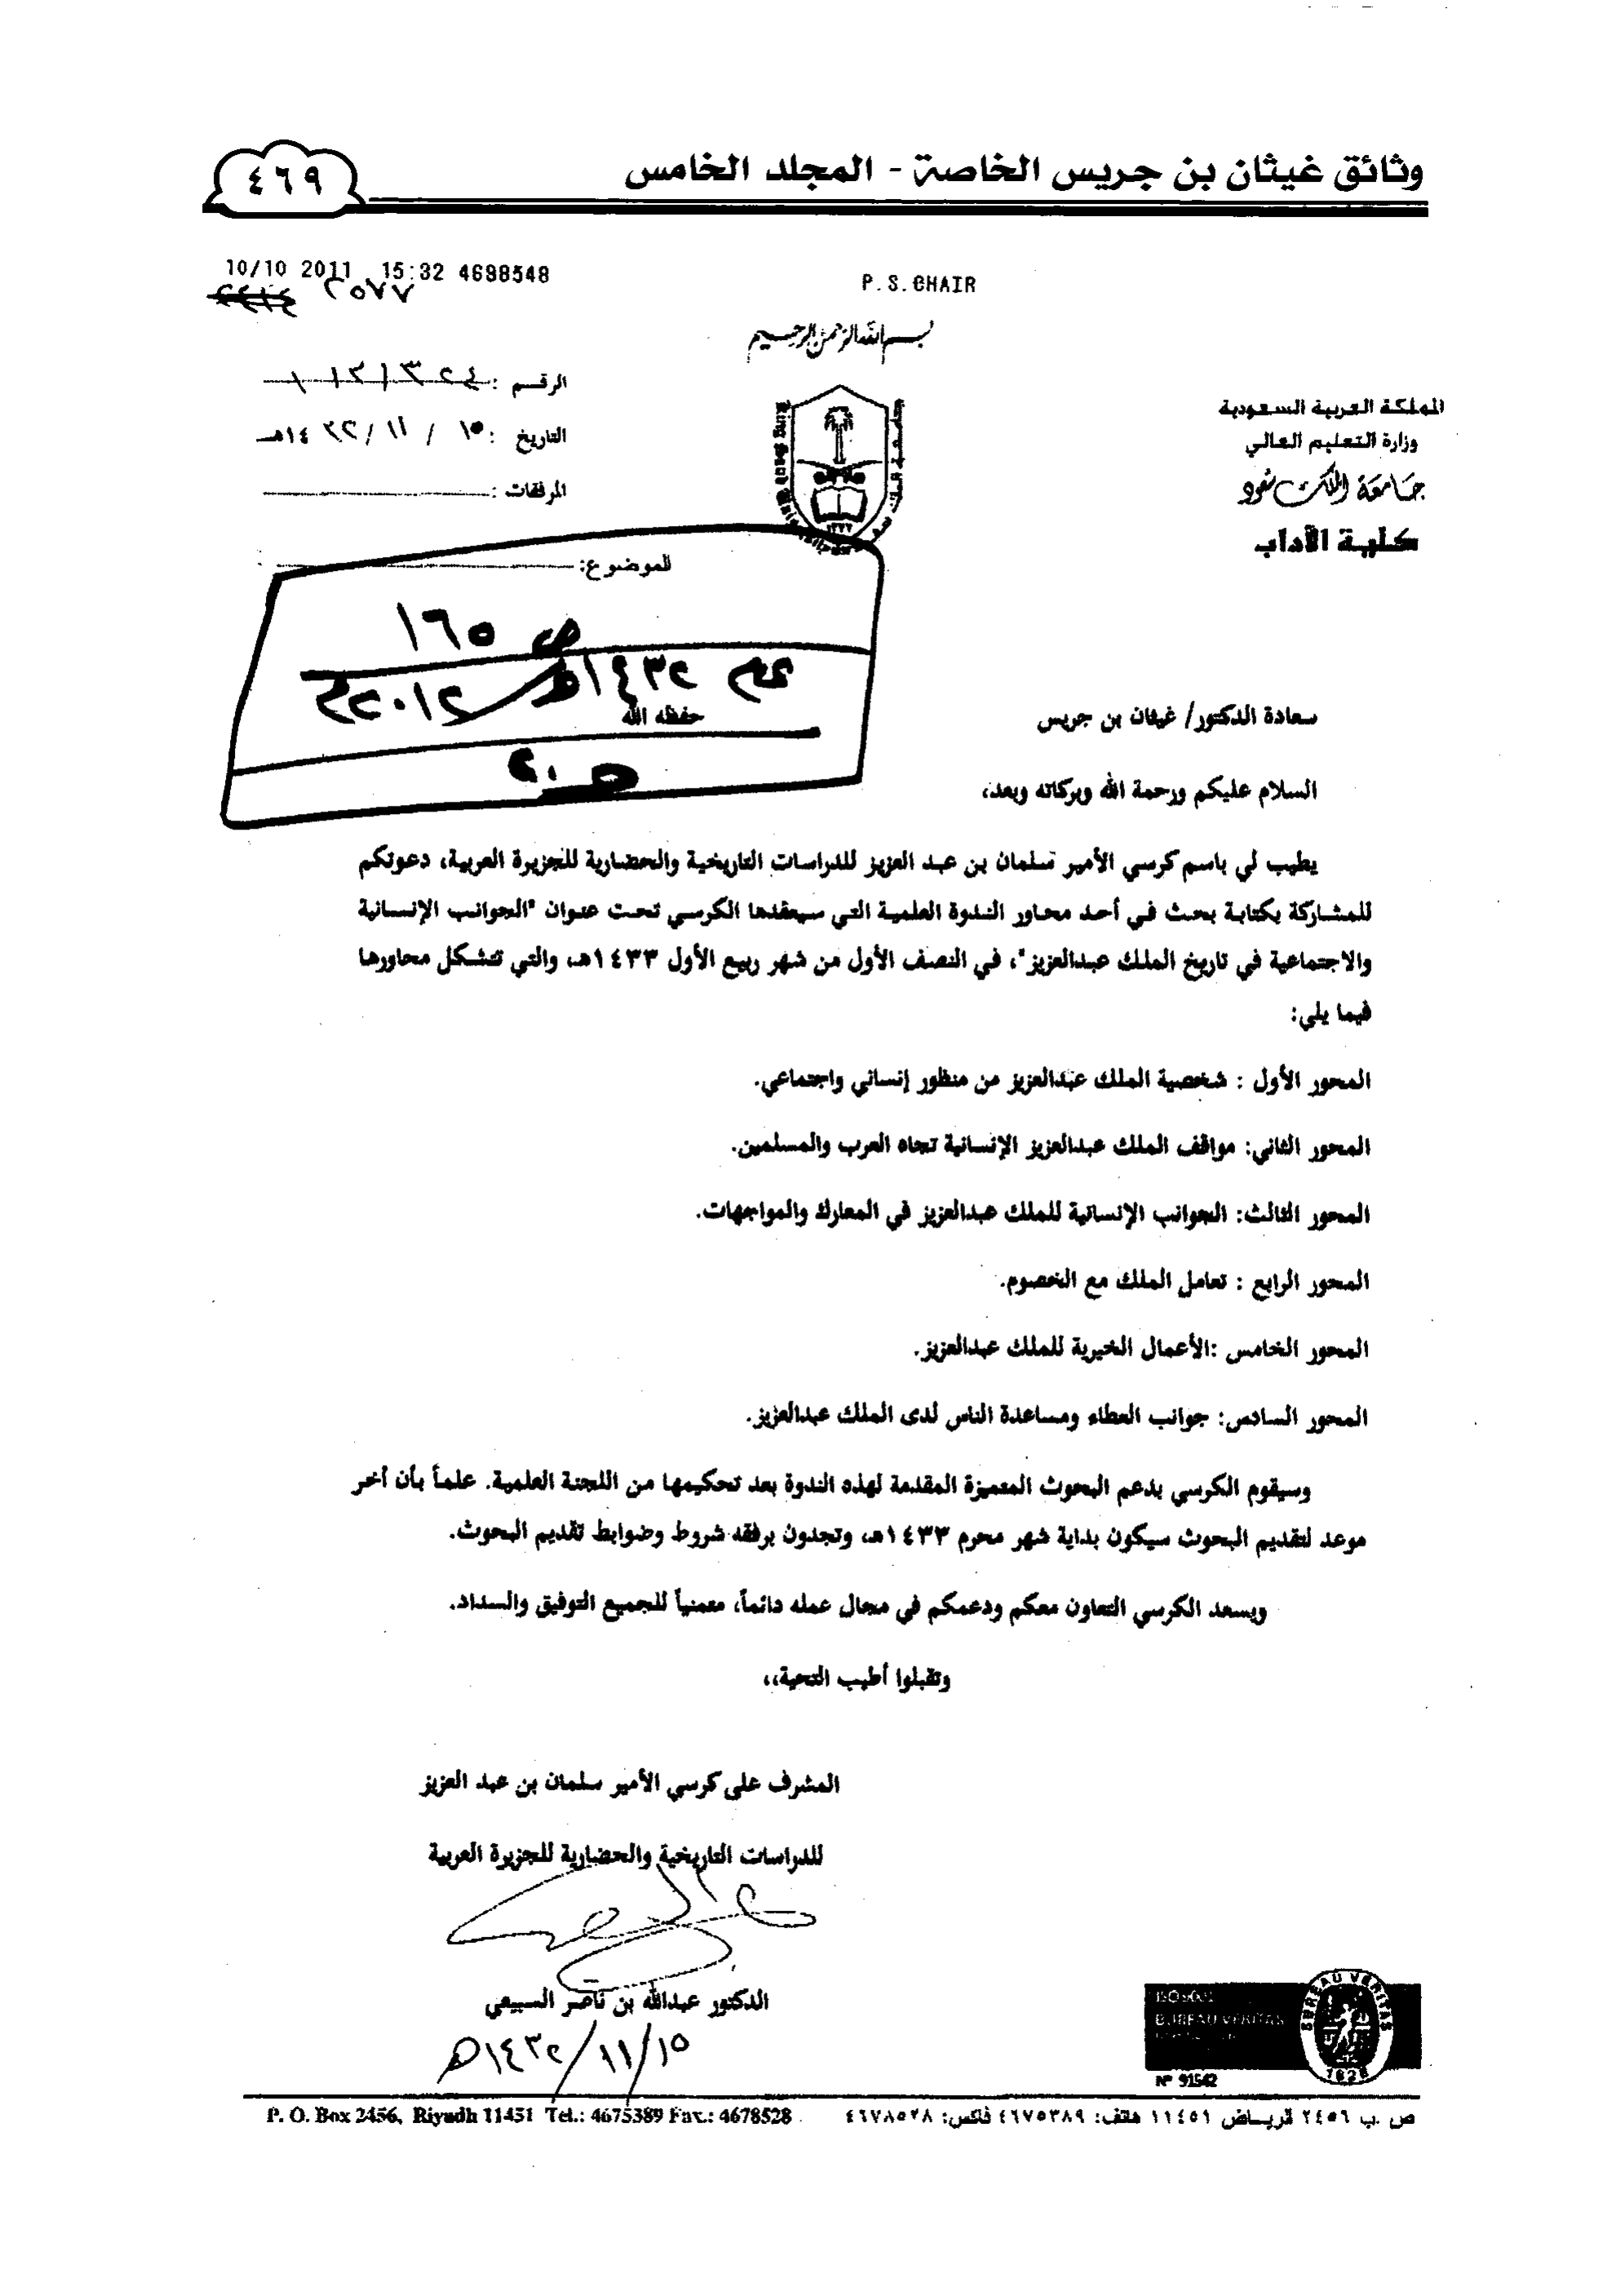 وثائق غيثان بن جريس الخاصة - المجلد الخامس
٤٦٩
10/10 2011 15:32 4698548
P.S.CHAIR
٢٥٧٧
بسم الله الرحمن الرحيم
المملكة العربية السعودية
وزارة التعليم العالي
جامعة الملك سعود
كلية الآداب
الرقم :
التاريخ : ١٥ / ١١ / ١٤٣٢هـ
المرفقات :
الموضوع:
ص ١٦٥
عام ١٤٣٢هـ ٢٠١٢م
سعادة الدكتور/ غيثان بن جريس
حفظه الله
السلام عليكم ورحمة الله وبركاته وبعد،
يطيب لي باسم كرسي الأمير سلمان بن عبد العزيز للدراسات التاريخية والحضارية للجزيرة العربية، دعوتكم
للمشاركة بكتابة بحث في أحد محاور الندوة العلمية التي سيعقدها الكرسي تحت عنوان "الجوانب الإنسانية
والاجتماعية في تاريخ الملك عبدالعزيز"، في النصف الأول من شهر ربيع الأول ١٤٣٣هـ، والتي تتشكل محاورها
فيما يلي:
المحور الأول : شخصية الملك عبدالعزيز من منظور إنساني واجتماعي.
المحور الثاني: مواقف الملك عبدالعزيز الإنسانية تجاه العرب والمسلمين.
المحور الثالث: الجوانب الإنسانية للملك عبدالعزيز في المعارك والمواجهات.
المحور الرابع : تعامل الملك مع الخصوم.
المحور الخامس :الأعمال الخيرية للملك عبدالعزيز.
المحور السادس: جوانب العطاء ومساعدة الناس لدى الملك عبدالعزيز.
وسيقوم الكرسي بدعم البحوث المتميزة المقدمة لهذه الندوة بعد تحكيمها من اللجنة العلمية. علماً بأن أخر
موعد لتقديم البحوث سيكون بداية شهر محرم ١٤٣٣هـ، وتجدون برفقه شروط وضوابط تقديم البحوث.
ويسعد الكرسي التعاون معكم ودعمكم في مجال عمله دائماً، متمنياً للجميع التوفيق والسداد.
وتقبلوا أطيب التحية،،
المشرف على كرسي الأمير سلمان بن عبد العزيز
للدراسات التاريخية والحضارية للجزيرة العربية
الدكتور عبدالله بن ناصر السبيعي
١٥/١١/١٤٣٢هـ
BUREAU VERITAS
1828
N° 91542
ص .ب ٢٤٥٦ الريـاض ١١٤٥١ هاتف: ٤٦٧٥٣٨٩ فاكس: ٤٦٧٨٥٢٨
P. O. Box 2456, Riyadh 11451 Tel.: 4675389 Fax.: 4678528